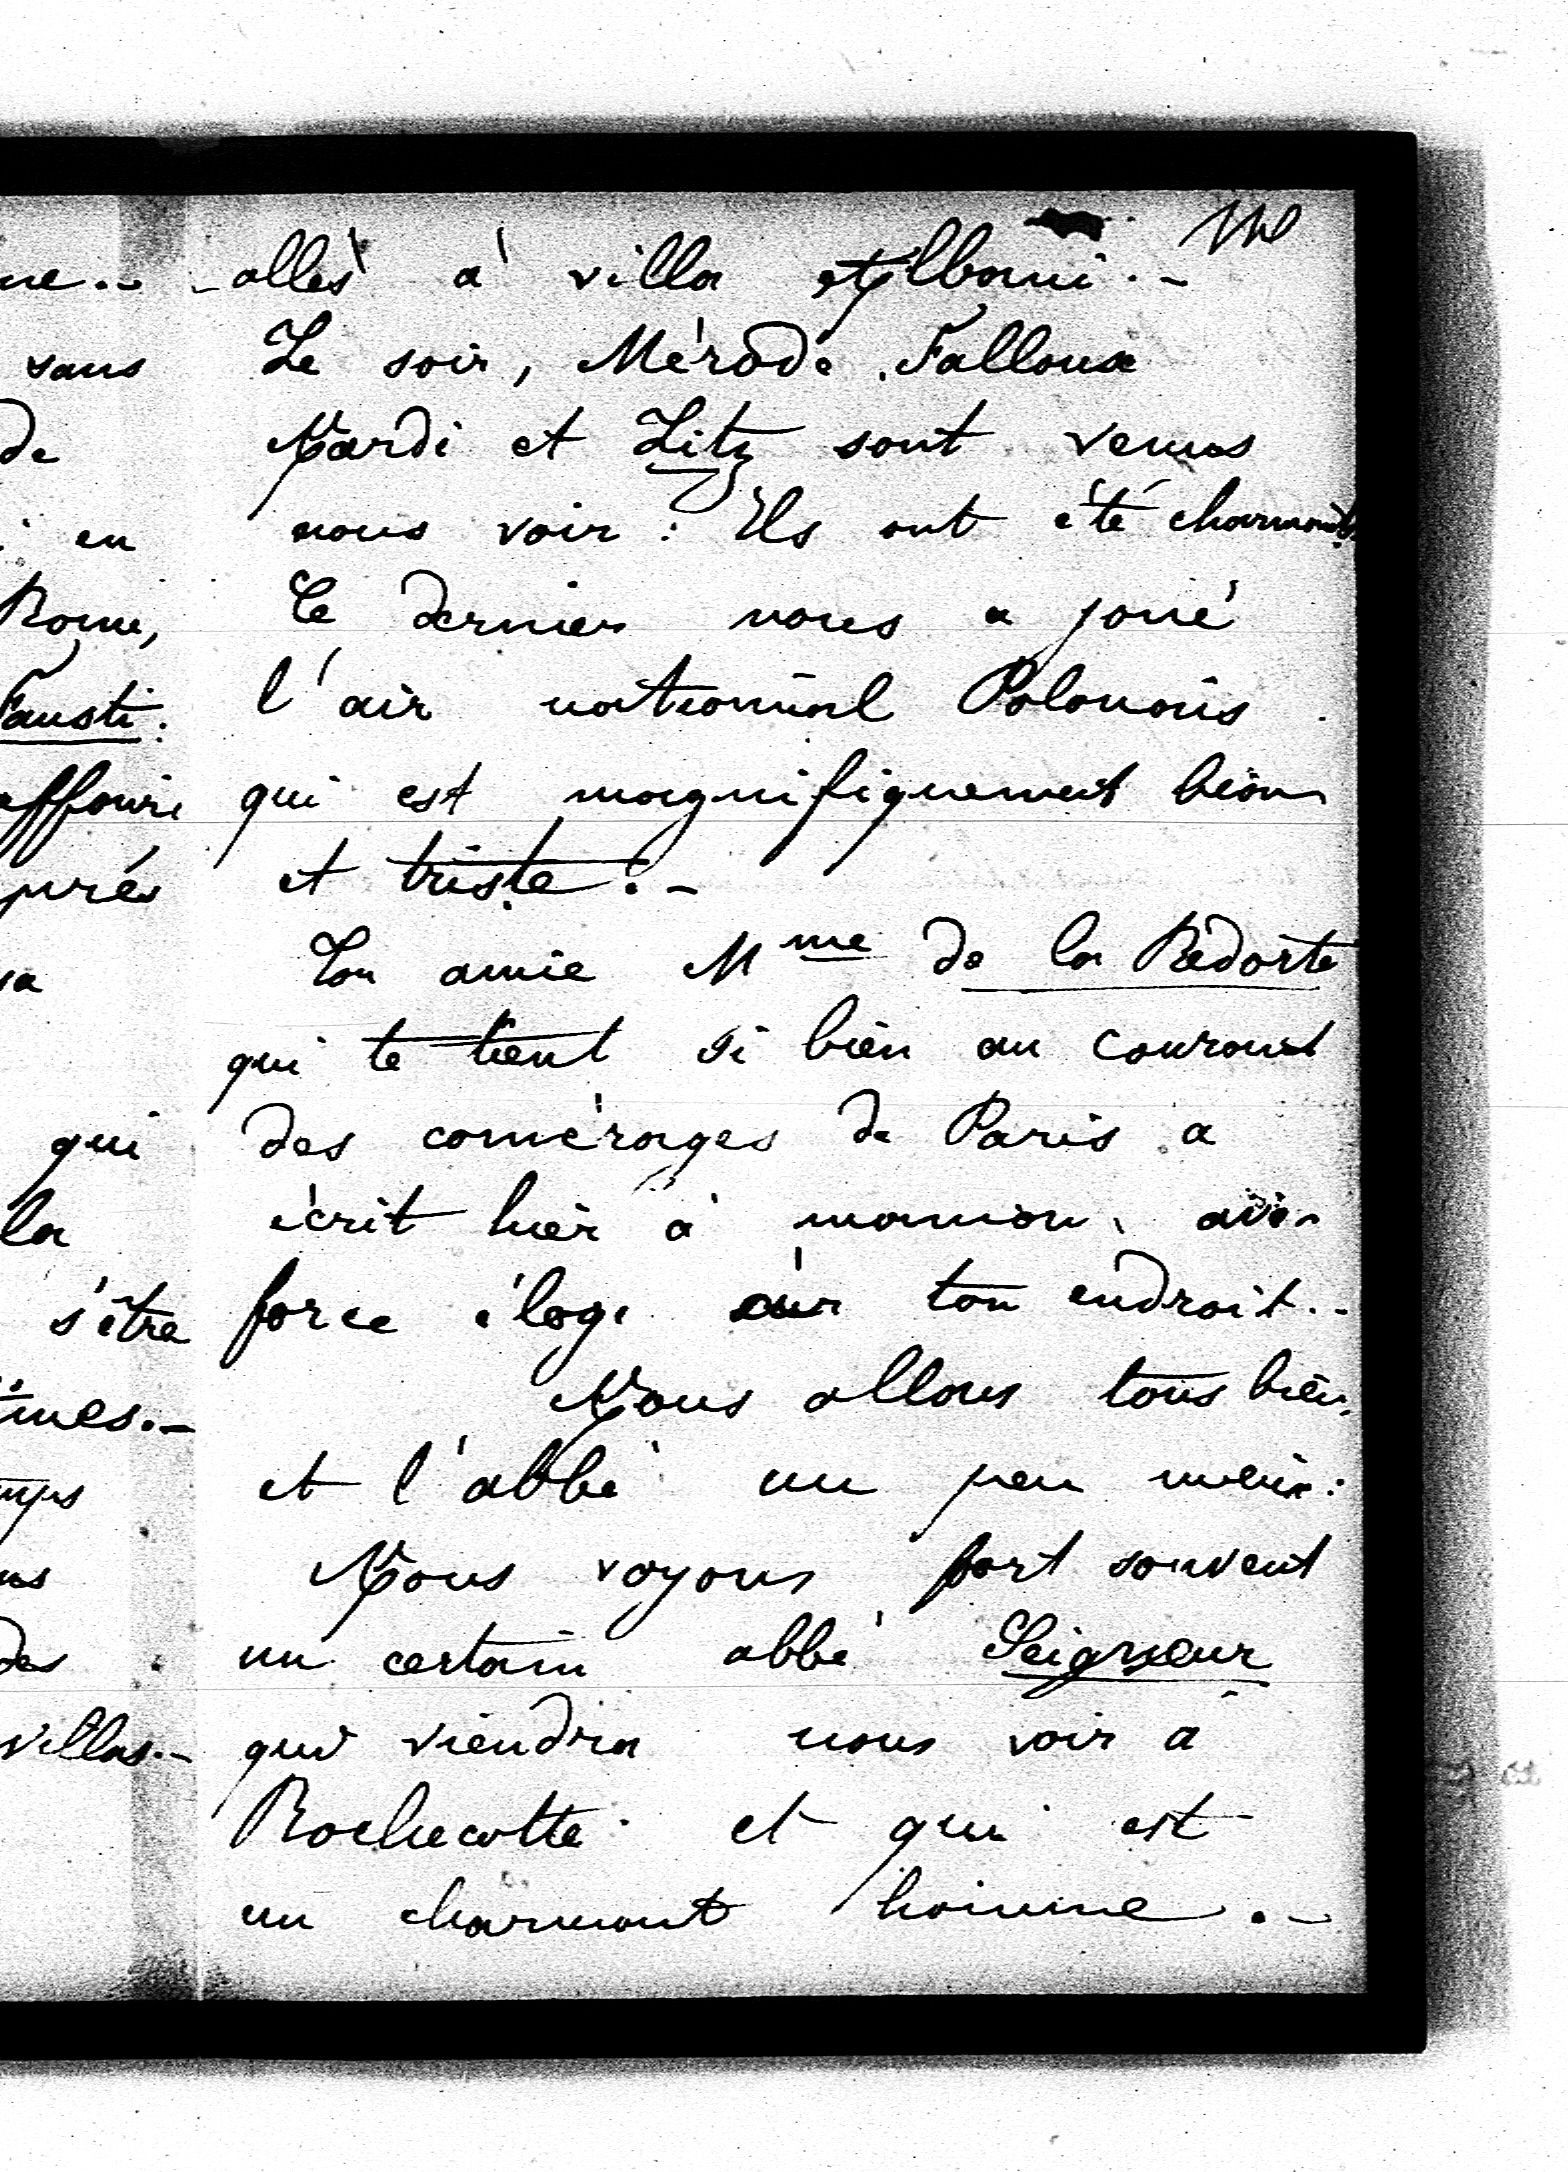 ne.-
sans
de
en
Rome,
Fausti:
affaire
près
sa
qui
la
s'être
mes.-
mps
ns
des
villas.-
allés à villa Albani.-
Le soir, Mérode, Falloux
Nardi et Litz sont venus
nous voir : Ils ont été charmants.
Ce dernier nous a joué
l'air national Polonais
qui est magnifiquement beau
et triste.-
Ton amie Mme de la Redorte
qui te tient si bien au courant
des comérages de Paris a
écrit hier à maman, avec
force éloge sur ton endroit.-
Nous allons tous bien,
et l'abbé un peu mieux:
Nous voyons fort souvent
un certain abbé Seigneur
qui viendra nous voir à
Rochecotte et qui est
un charmant homme.-